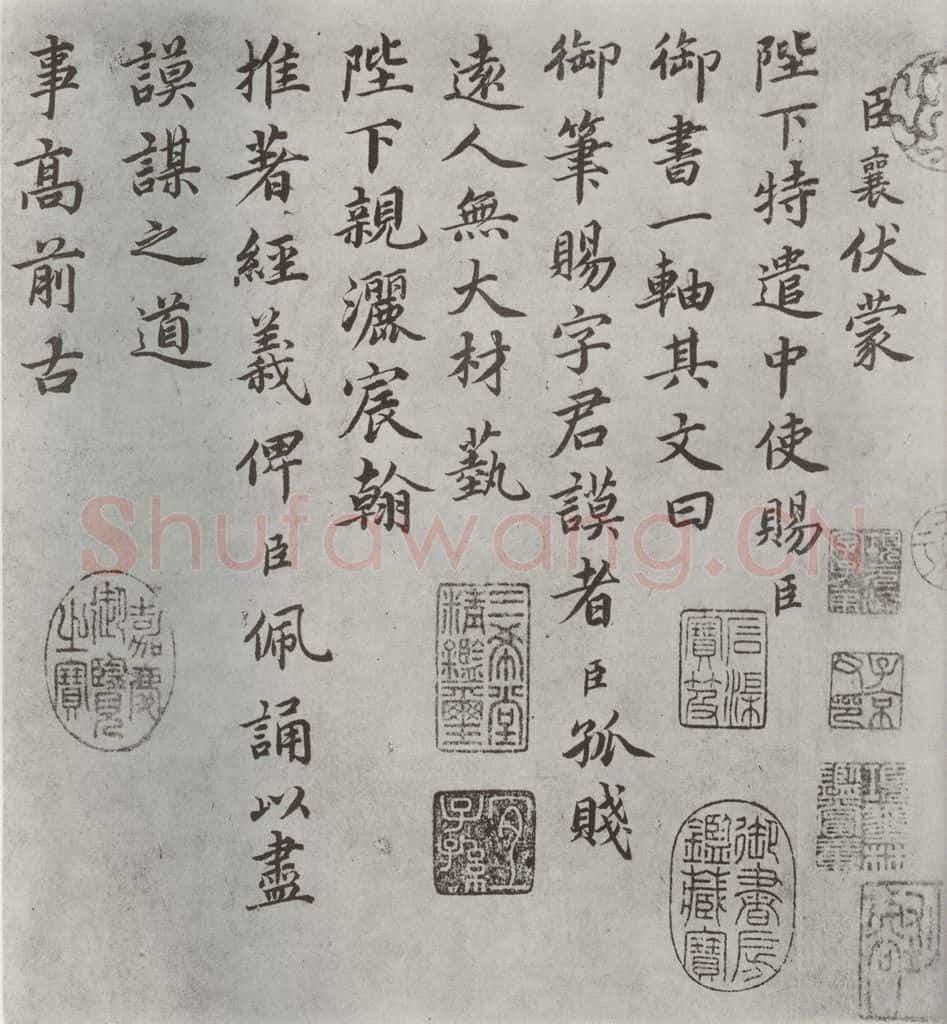 臣襄伏蒙
陛下特遣中使賜臣
御書一軸其文曰
御筆賜字君謨者臣孤賤
遠人無大材藝
陛下親灑宸翰
推著經義俾臣佩誦以盡
謨謀之道
事髙前古
Shufawang.CN
石渠寶笈
御書房鑑藏寶
三希堂精鑑璽
宜子孫
嘉慶御覽之寶